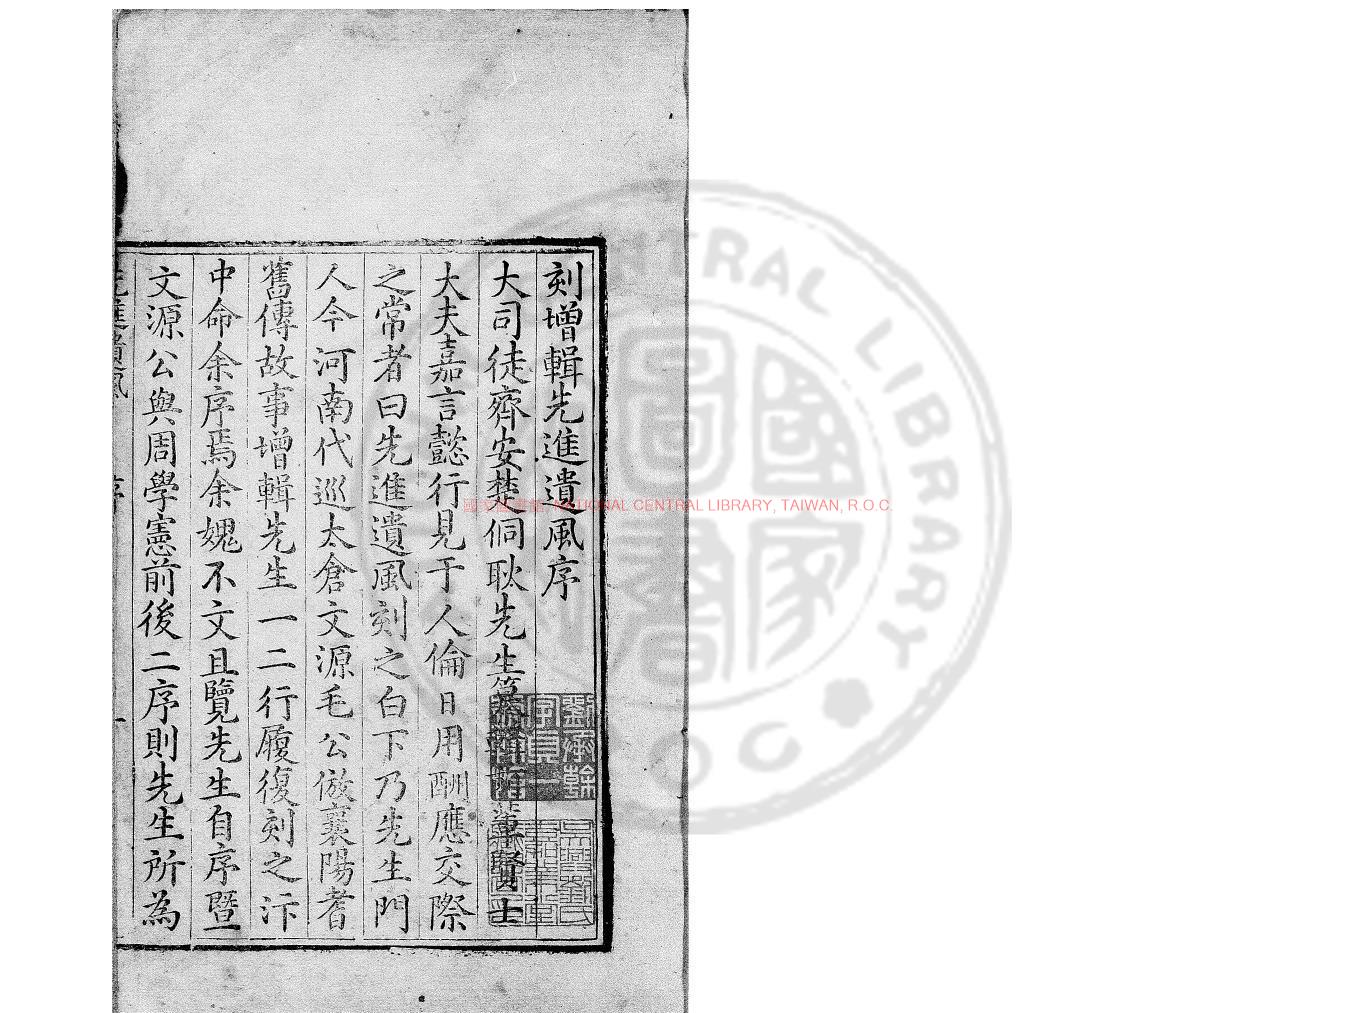 刻增輯先進遺風序
大司徒齊安楚侗耿先生篹輯
賢士
大夫嘉言懿行見于人倫日用酬應交際
之常者曰先進遺風刻之白下乃先生門
人今河南代巡太倉文源毛公倣襄陽耆
舊傳故事增輯先生一二行履復刻之汴
中命余序焉余媿不文且覽先生自序暨
文源公與周學憲前後二序則先生所為
先進遺風
序
一
國家圖書館, NATIONAL CENTRAL LIBRARY, TAIWAN, R.O.C.
劉承幹
字貞一
吳興劉氏
嘉業堂
CENTRAL LIBRARY
ROC
國家圖書